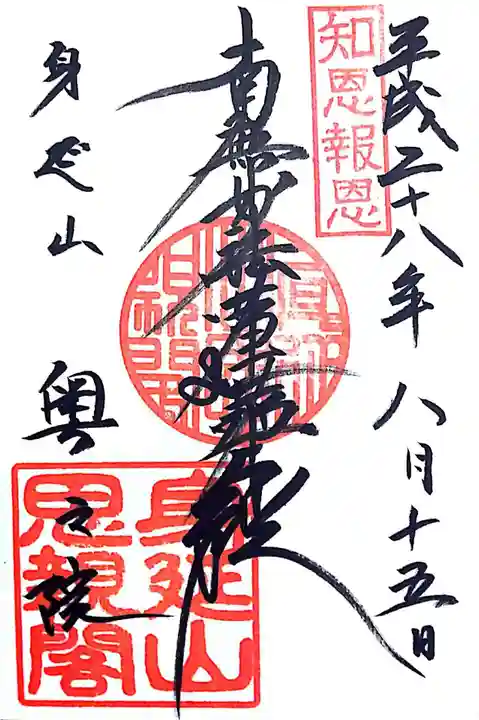 平成二十八年 八月十五日
知恩報恩
南無妙法蓮華経
身延山 奥之院
身延山
思親閣